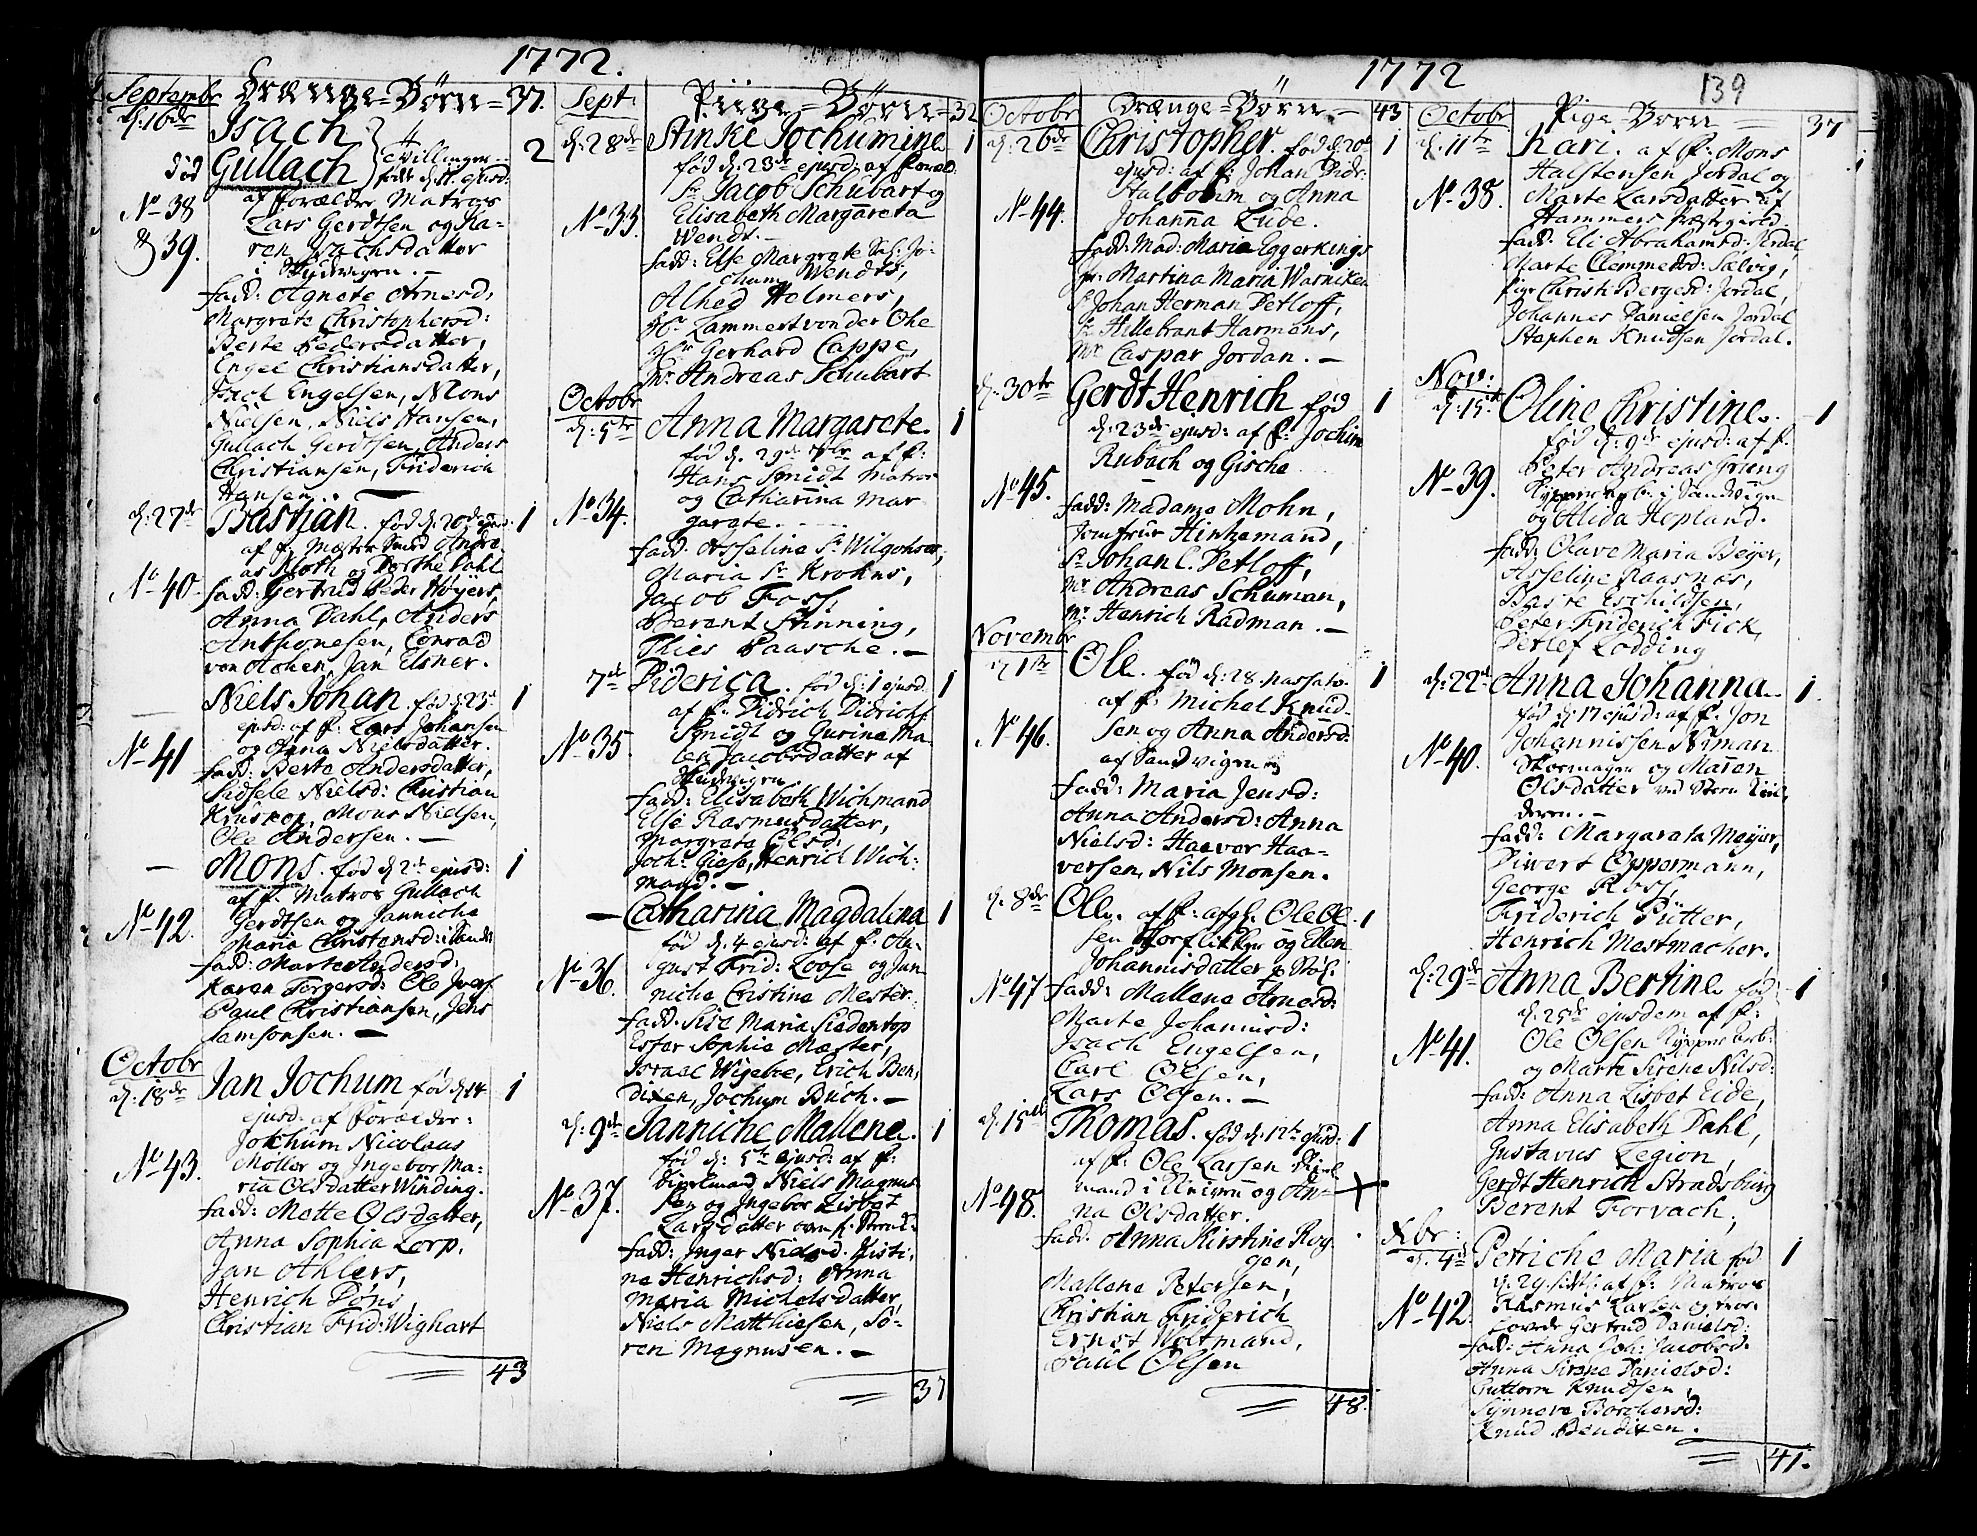 1772.
Septembr Drænge-Børn = 37.
d: 16de Isach
død Gullach } Tvillinger 2
født d. 11. ejusd:
No 38 af Forældre Matros
& 39. Lars Gerdtsen og Ka-
ren Isachsdatter
i Sydvigen. -
fadd: Agnete Arnesd:
Margrete Christophersd:
Berte Pedersdatter,
Engel Christiansdatter,
Isach Engelsen, Mons
Nielsen, Niels Hansen,
Gullach Gerdtsen, Anders
Christiansen, Friderich
Hansen. -
d: 27de Bastian. fød d. 20de ejusd: 1
af f. Mester Smed Andre-
as Kloth og Dorthe Dahl
No 40. fadd: Gertrud Peder Høyers,
Anna Dahl, Anders
Anthonesen, Conrad
von Achen, Jan Elsner.
- Niels Johan. fød d. 23de 1
ejusd: af f. Lars Johansen
og Anna Nielsdatter.
No 41 fadd: Berte Andersdatter,
Sidsele Nielsd: Christian
Kruskop, Mons Nielsen,
Ole Andersen. -
- Mons. fød d. 21 ejusd: 1
af f. Matros Gullach
Gerdtsen og Janniche
No 42. Maria Christensd: i Sandv:
fadd: Marte Andersd:
Karen Torgersd: Ole Ivers.
Paul Christiansen, Jens
Samsonsen. -
Octobr
d: 18de Jan Jochum fød d. 14 1
ejusd: af Forældre:
Jochum Nicolaus
No 43. Møller og Ingebor Ma-
ria Olsdatter Winding.
fadd: Mette Olsdatter,
Anna Sophia Lorp,
Jan Ahlers,
Henrich Pöns
Christian Frid: Wighart
43
Sept. Piige-Børn = 32
d: 28de Stinke Jochumine 1
fød d. 23de ejusd: af Foræld:
Sr Jacob Schubart og
No 33. Elisabeth Margareta
Wendt. -
fadd: Else Margrete Sal: Jo-
chum Wendts,
Alhed Helmers,
Hr Lammert von der Ohe
Hr Gerhard Cappe,
Mr Andreas Schubart
Octobr
d: 5te Anna Margarete. 1
fød d. 29de 7br af f:
Hans Smidt Matros
No 34. og Catharina Mar
garete. -
fadd: Asseline Sr Wilgohs,
Maria Sr Krohns,
Jacob Foss,
Berent Stinning,
Thies Paasche. -
7de Diderica. fød d: 1 ejusd. 1
af f. Didrich Didrichs.
Smidt og Gurina Ma-
No 35. len Jacobsdatter af
Sandvigen
fadd: Elisabeth Wichmand
Else Rasmusdatter,
Margrete Elsd:
Joch: Giese, Henrich Wich-
mand. -
- Catharina Magdalina 1
fød d. 4 ejusd: af f. Au-
gust Frid: Loose og Jan
No 36. niche Cristine Mester.
fadd: Sise Maria Siedentop
Ester Sophie Mester,
Israel Wijebe, Erich Ben-
dixen, Jochum Buch. -
d: 9de Janniche Mallene. 1
fød d: 5te ejusd: af f:
No 37. Niels Magnus
sen og Ingebor Lisbet
Larsdatter
fadd: Inger Nielsd. Kisti-
ne Henrichsd: Anna
Maria Michelsdatter
Niels Matthiesen, Sö-
ren Magnusen. -
37
1772 139
Octobr Drænge-Børn - 43
d: 26de Christopher. fød d. 20de 1
ejusd: af f. Johan Didr:
Stalbohm og Anna
No 44. Johanna Lube.
fadd: Mad: Maria Eggerkings
Jfr: Martina Maria Warniken
Sr Johan Herman Detloff,
Sr Hillebrant Harmens,
Mr Caspar Jordan. -
d. 30te Gerdt Henrich fød 1
d: 23de ejusd: af f: Jochim
Rubach og Gische
No 45. fadd: Madame Mohn,
Jomfrue Hinkemand,
Sr Johan C. Detloff,
Mr Andreas Schuman,
Mr Henrich Radman. -
Novembr
d 1ste Ole. fød d: 28. passato. 1
af f: Michel Knud-
No 46. sen og Anna Andersd:
af Sandvigen
fadd: Maria Jensd:
Anna Andersd: Anna
Nielsd: Haaver Haa-
versen, Nils Monsen.
d: 8de Ole. af f: afgl. Ole Ol- 1
sen og Ellen
Johannisdatter
No 47 fadd: Mallene Arnesd:
Marte Johannisd:
Isach Engelsen,
Carl Olsen,
Lars Olsen. -
d. 15de Thomas. fød d: 12te ejusd: 1
af f: Ole Larsen
mand i og An-
No 48. na Olsdatter.
fadd: Anna Kirstine Rog
gen,
Mallene Petersen,
Christian Friderich
Ernst Woltmand,
Paul Olsen
48.
Octobr Pige-Børn 37
d: 11te Kari. af f: Mons 1
Halstensen Jordal og
No 38. Marte Larsdatter af
Hammers Præstegield.
fadd: Eli Abrahamsd: Jordal,
Marte Clemmetsd: Sælvig,
Pige Christi Bergesd: Jordal,
Johannes Danielsen Jordal
Stephen Knudsen Jordal.
Nov:
d: 15de Oline Christine. 1
fød d. 9de ejusd: af f.
Peter Andreas Grung
No 39. i Sandvigen
og Alida Hopland.
fadd: Olave Maria Beyer,
Asseline Raasnes,
Baste Eschildsen,
Peter Friderich Fick,
Detlef Lodding
d: 22de Anna Johanna. 1.
fød d. 17 ejusd: af f. Jon
Johannissen Niman
No 40. Skoemager og Maren
Olsdatter ved Steen
deren. -
fadd: Margarata Meyer,
Diwert Oppermann,
George Ross,
Friderich Pütter,
Henrich Mestmacher.
d: 29de Anna Bertine fød 1
d. 25de ejusdem af f:
Ole Olsen Kypper Arb:
No 41. og Marte Sirene Nilsd:
fadd: Anna Lisbet Eide,
Anna Elisabeth Dahl,
Gustavus Legion,
Gerdt Henrich Stradsburg
Berent Forvach,
Xbr:
d. 4de Petriche Maria fød 1
d. 29. sidst: af f. Matros
No 42. Rasmus Larsen og
Gertrud Danielsd:
fadd: Anna Joh: Jacobsd:
Anna Sirene Danielsd:
Guttorm Knudsen,
Synneve Borchersd:
Knud Bendixen.
41.